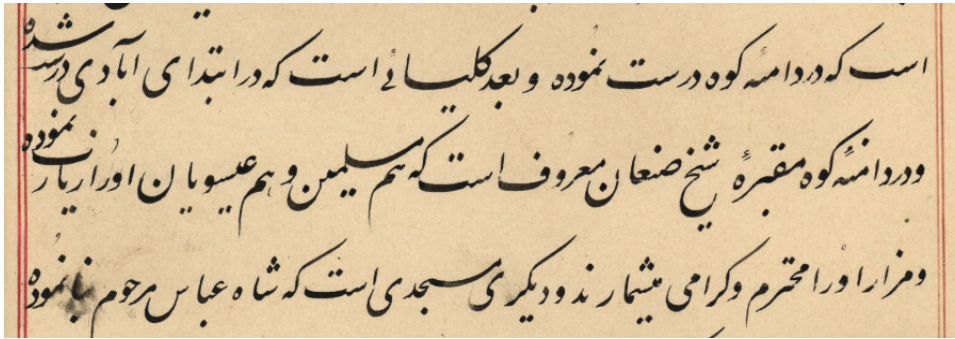 است که در دامنهٔ کوه درست نموده و بعد کلیسائی است که در ابتدای آبادی درست شده
و در دامنهٔ کوه مقبرهٔ شیخ صنعان معروف است که هم مسلمین و هم عیسویان او را زیارت نموده
و مزار او را محترم و گرامی میشمارند و دیگری مسجدی است که شاه عباس مرحوم بنا نموده